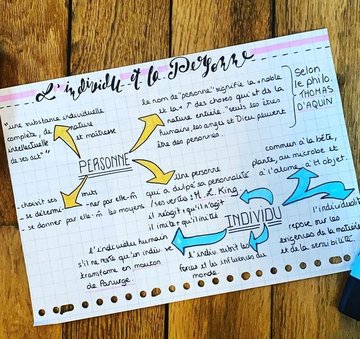 L'individu et la Personne
"une substance individuelle
complète, de nature
intellectuelle et maîtresse
de ses act°"
le nom de "personne" signifie la + noble
et la + ↑ des choses qui st ds la
nature entière "seuls les êtres
humains, les anges et Dieu peuvent
être des personnes.
Selon
le philo.
THOMAS
D'AQUIN
PERSONNE
- choisit ses buts
- se détermine par elle-m̂
- se donner par elle-m̂ les moyens
Une personne
qui a déployé sa personnalité
/ ses vertus : M. L. King
il réagit ≠ qu'il n'agit
il imite ≠ qu'il invite
INDIVIDU
commun à la bête,
plante, au microbe et
à l'atome → à tt objet.
l'individualité
repose sur les
exigences de la matière
et de la sensibilité.
l'individu humain
s'il ne reste qu'un indiv se
transforme en mouton
de Panurge
l'indiv. subit les
forces et les influences du
monde.